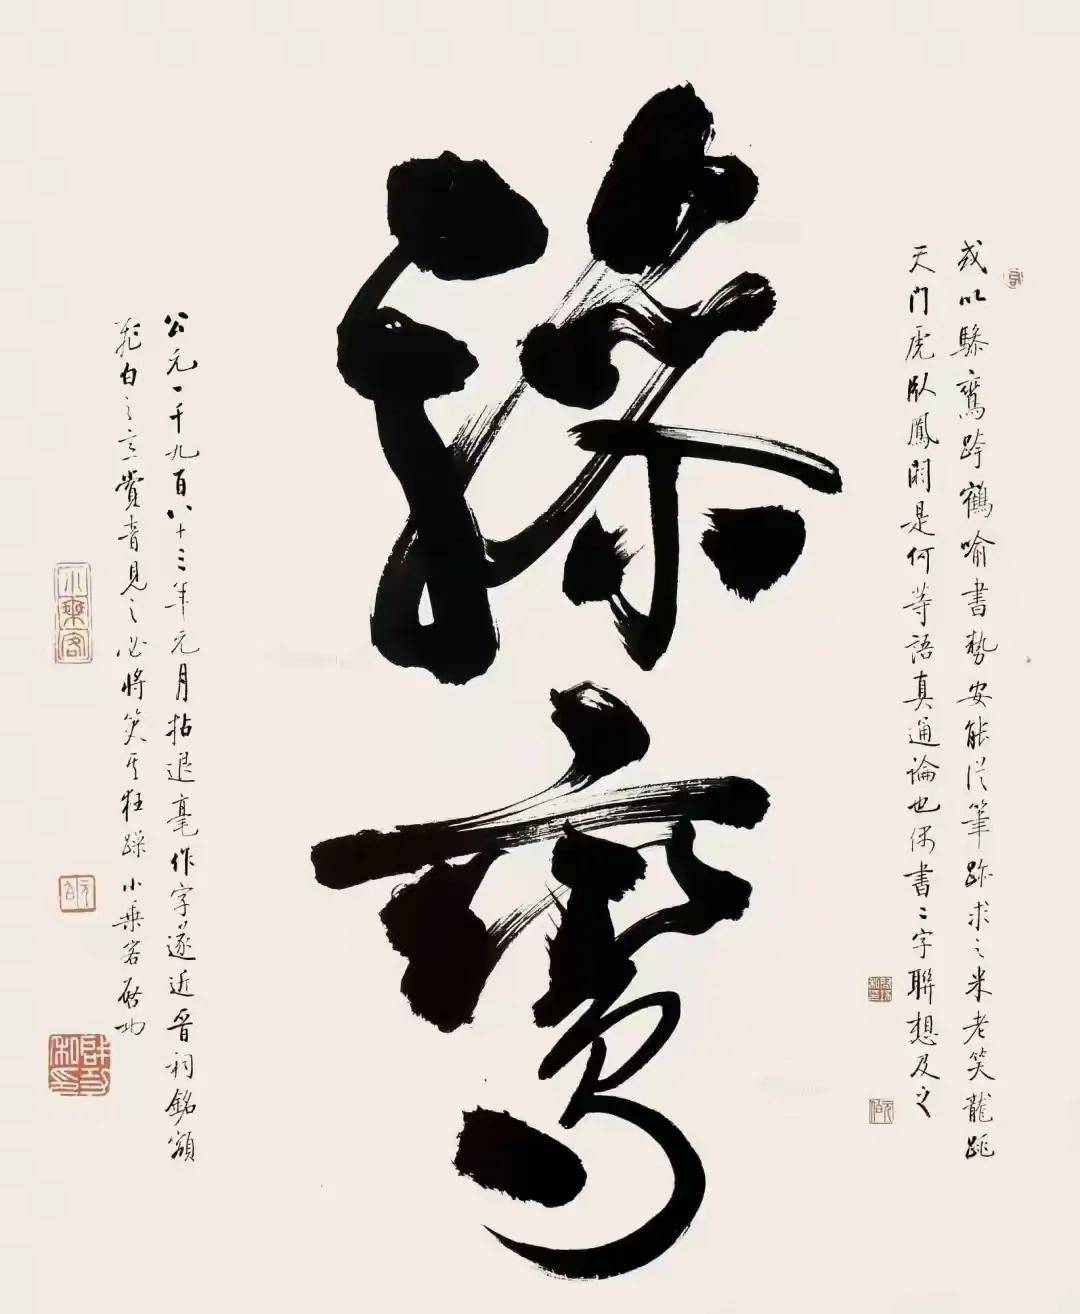 或以驂鸞跨鶴喻書勢安能從筆跡求之米老笑龍跳
天門虎臥鳳閣是何等語真通論也偶書二字聯想及之
驂鸞
公元一千九百八十三年元月拈退毫作字遂近晋祠銘額
飛白之意賞音見之必將笑其狂躁小乘客啓功
小乘客
元白
啟功私印